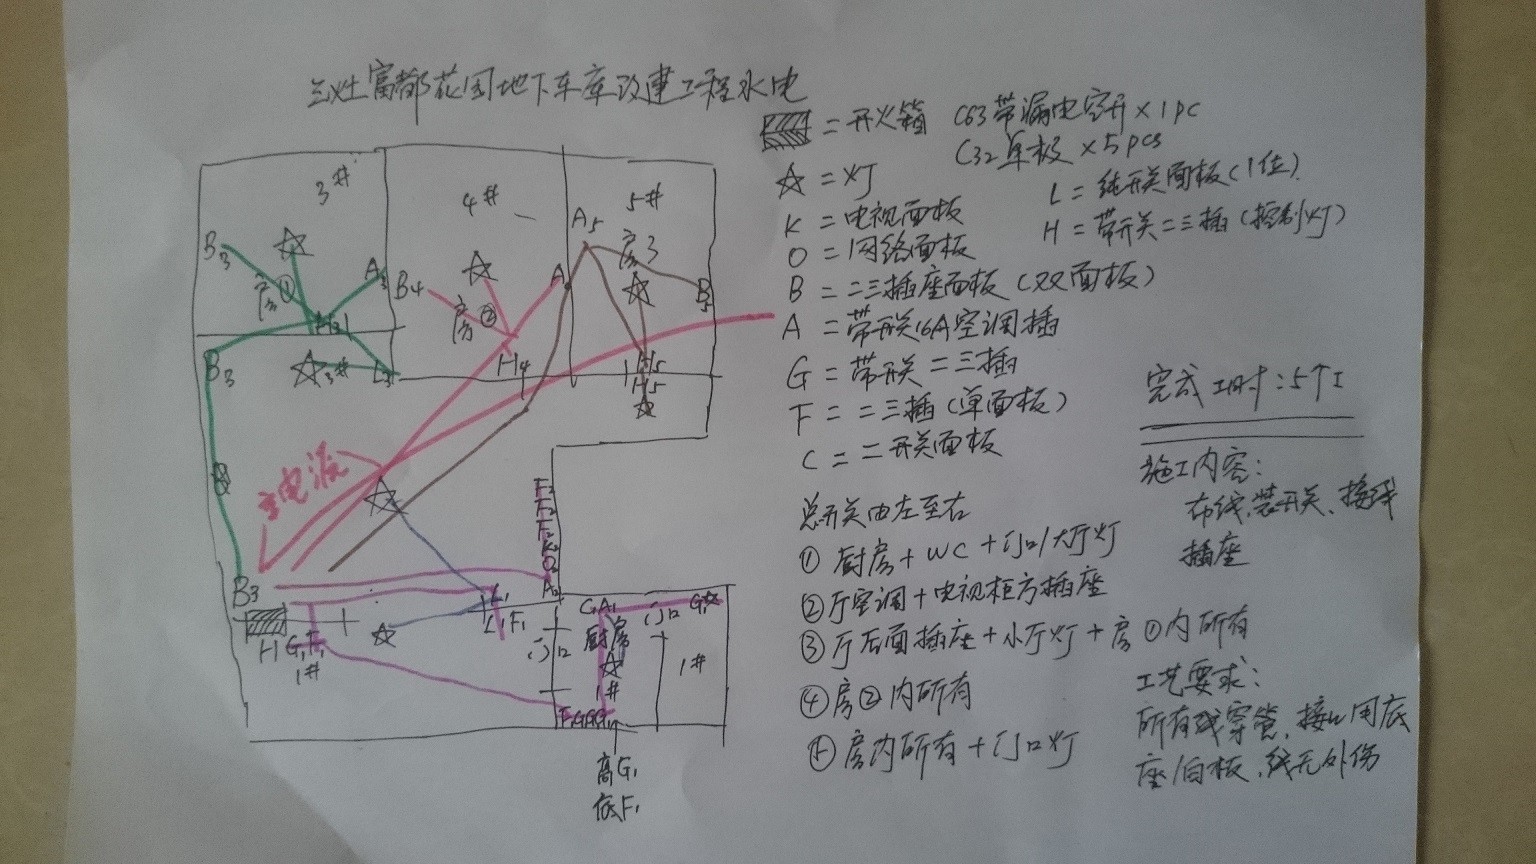 三灶富都花园地下车库改建工程水电
= 开火箱 C63带漏电空开×1pc
C32单极×5pcs
☆ = 灯
L = 纯开关面板(1位)
K = 电视面板
H = 带开关二三插(控制灯)
O = 网络面板
B = 二三插座面板(双面板)
A = 带开关16A空调插
G = 带开关二三插
F = 二三插(单面板)
C = 二开关面板
完成工时:5个工
施工内容:
布线,装开关、接线
插座
总开关由左至右
① 厨房+WC+门口/大厅灯
②厅空调+电视柜方插座
③厅后面插座+小厅灯+房①内所有
④房②内所有
⑤房内所有+门口灯
工艺要求:
所有线穿管,接口用底
座/白板,线无外伤
3#
4#
5#
B3
房①
A3
H3
B4
房②
A
H4
A5
房3
B5
H5
H5
B3
3#
L3
B
主电源
F2
F2
F2
K2
O2
A2
B3
H
G1F1
1#
L1
L1F1
门口
GA1
厨房
1#
门口
G1
1#
高G1
低F1